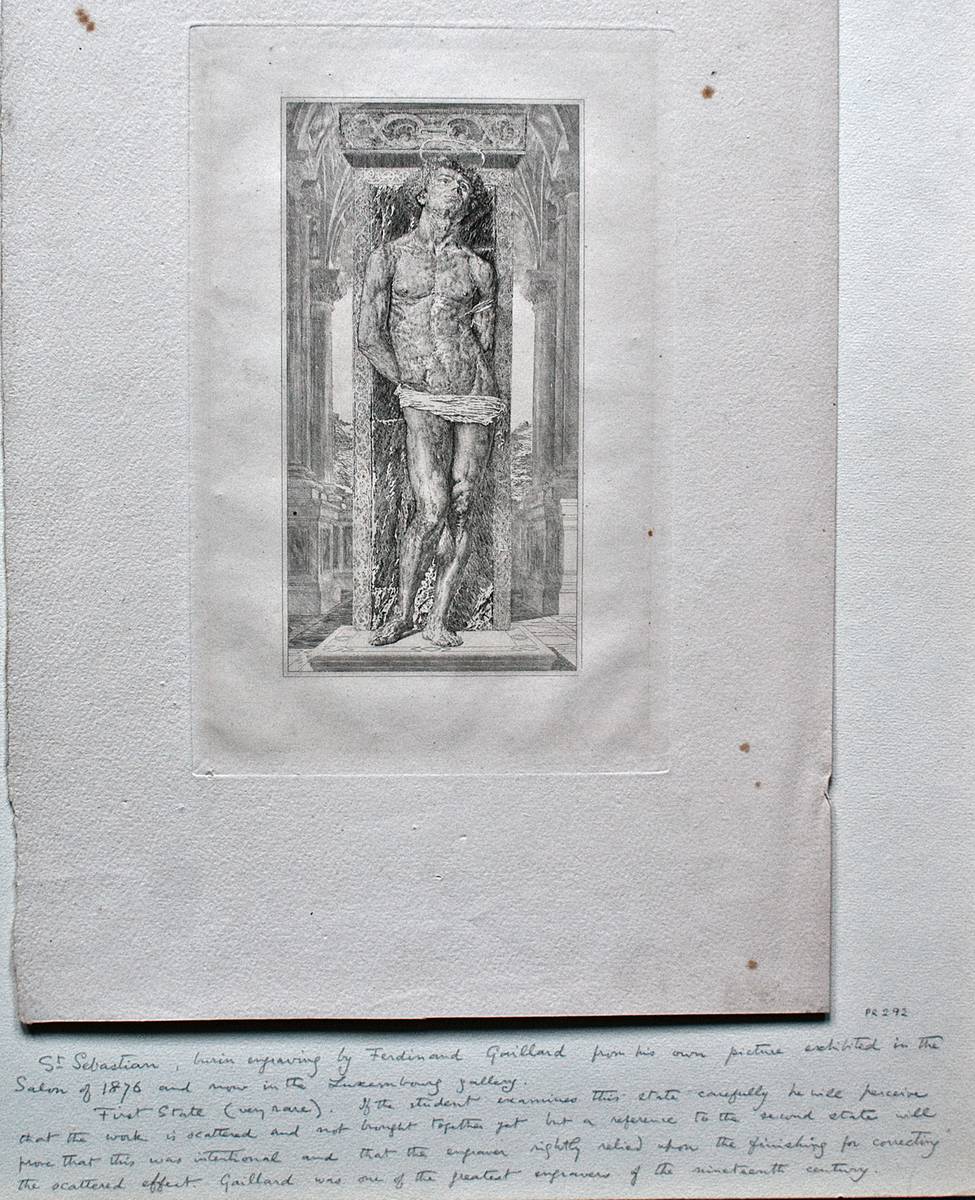 PR 292
St Sebastian, burin engraving by Ferdinand Gaillard from his own picture exhibited in the
Salon of 1876 and now in the Luxembourg gallery.
First State (very rare). If the student examines this state carefully he will perceive
that the work is scattered and not brought together yet but a reference to the second state will
prove that this was intentional and that the engraver rightly relied upon the finishing for correcting
the scattered effect. Gaillard was one of the greatest engravers of the nineteenth century.